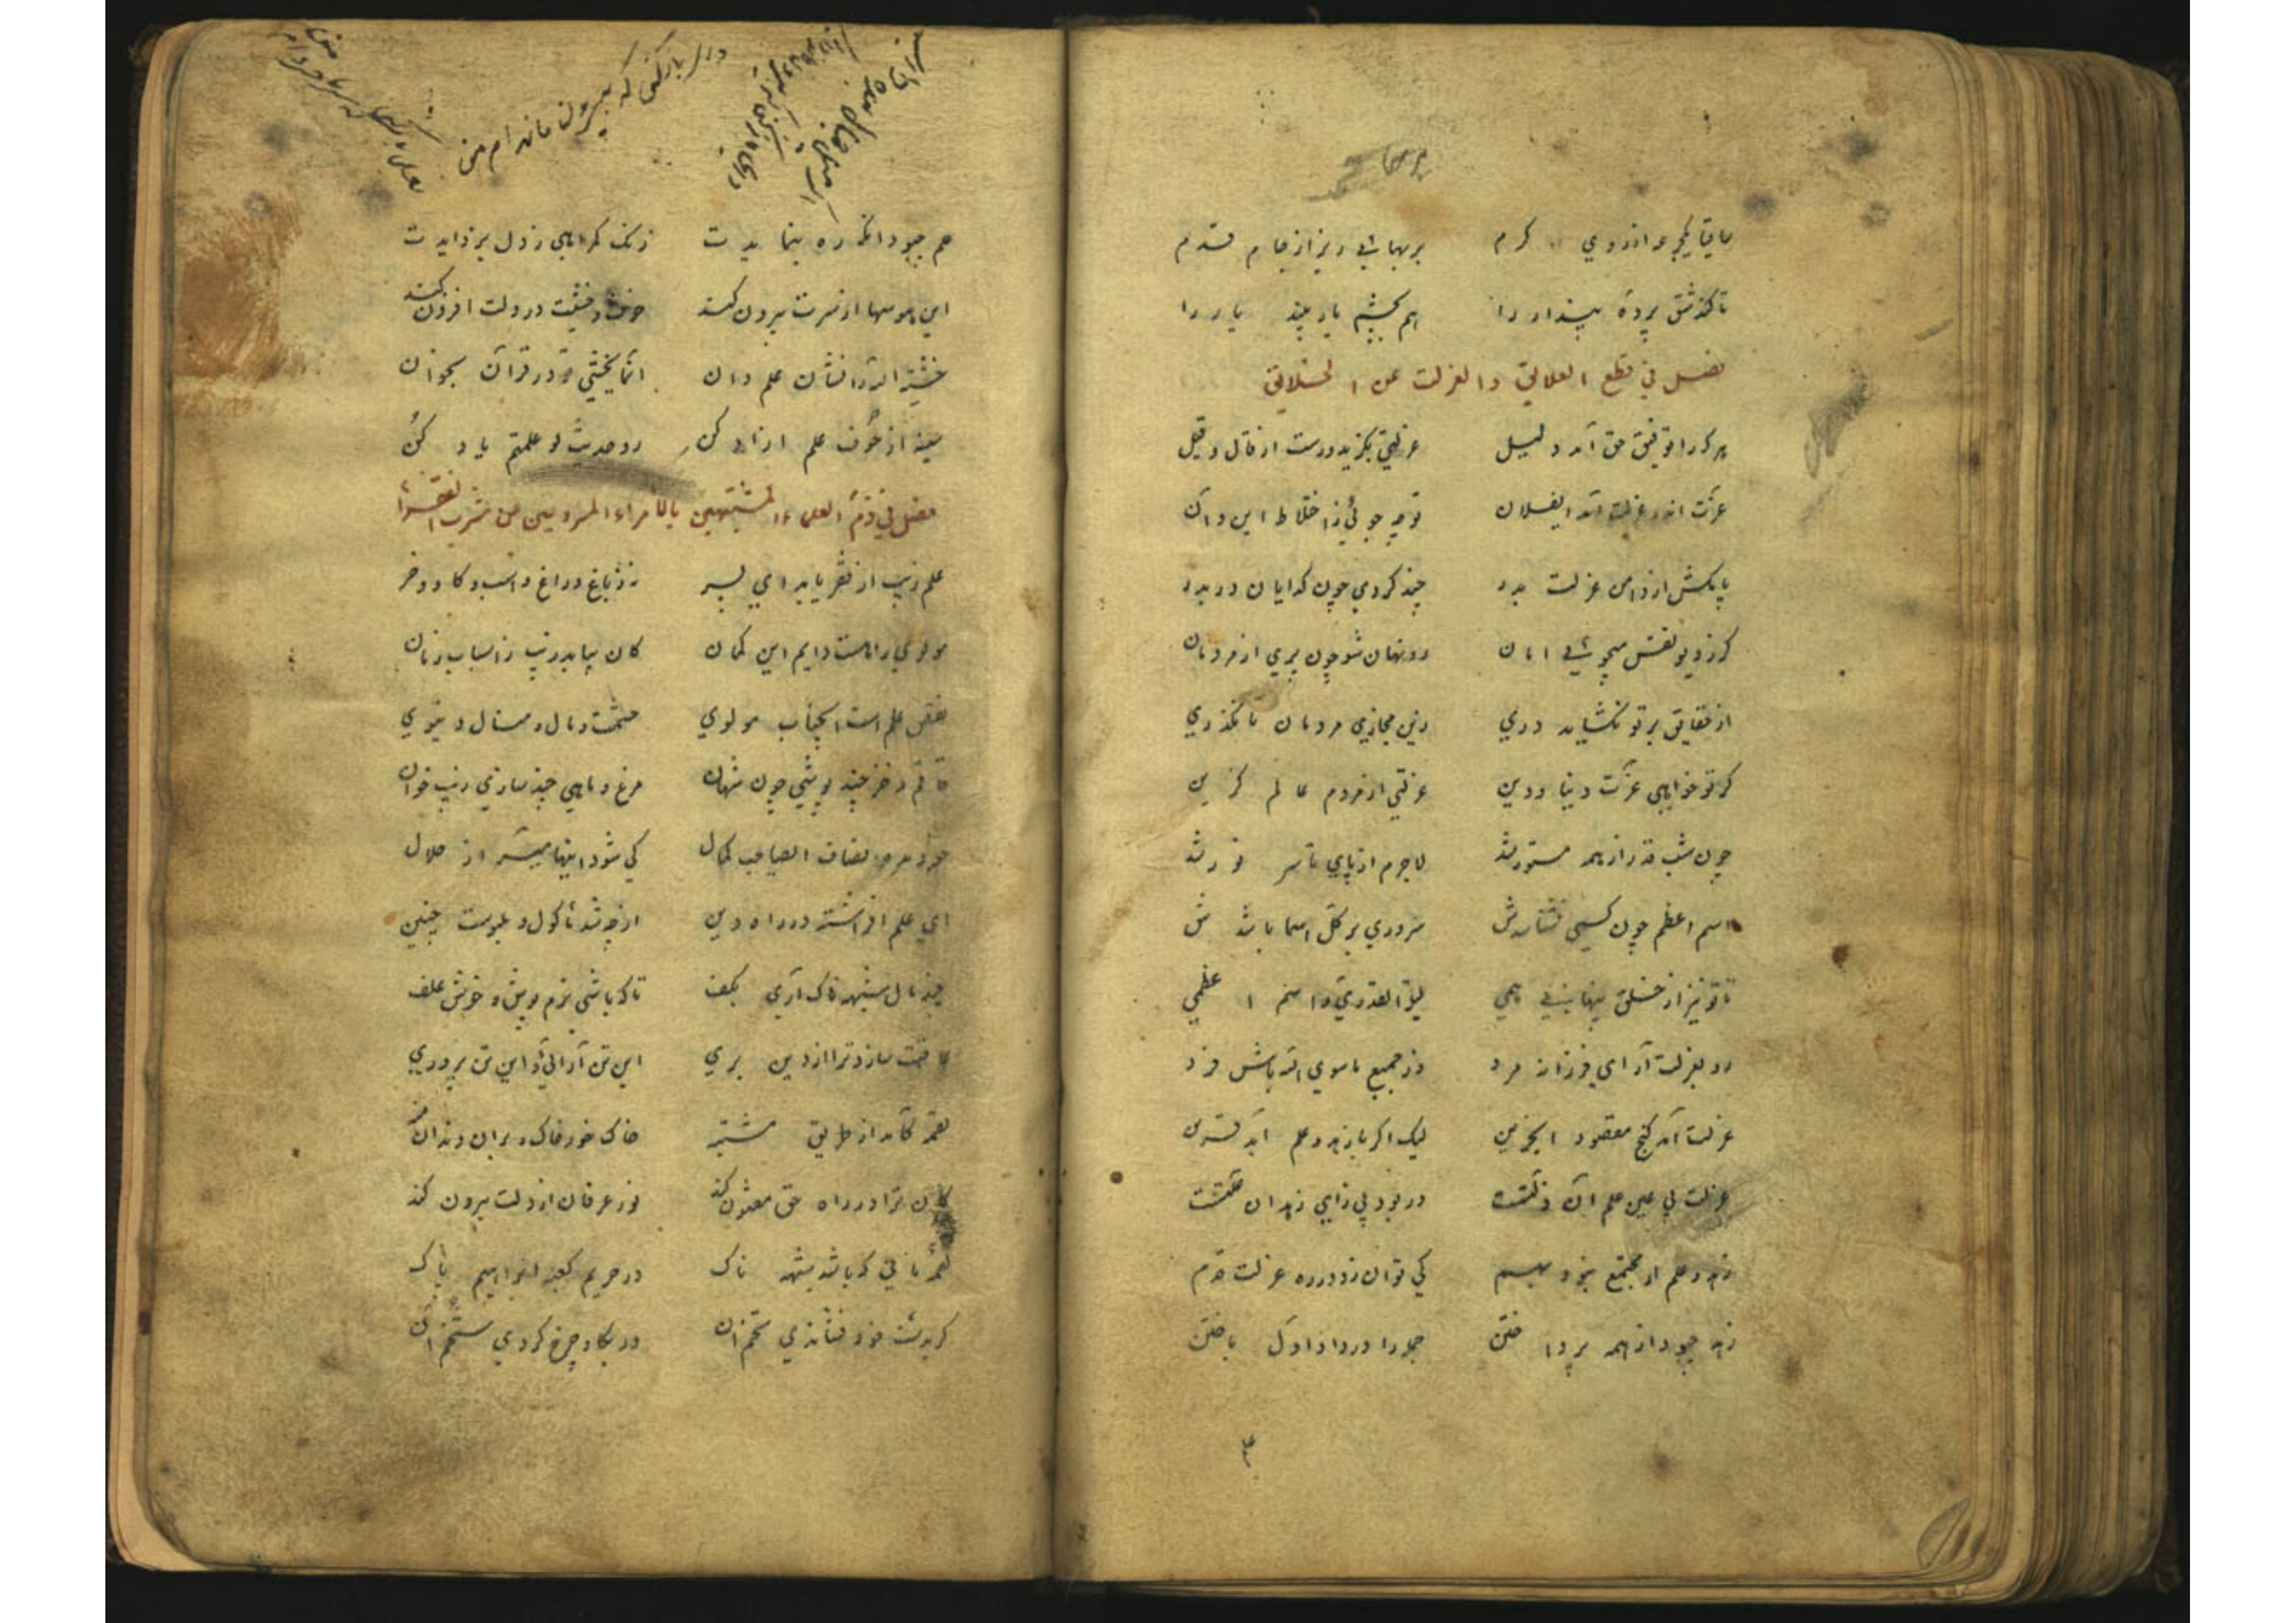 ساقیا یکجرعه از روی کرم    بر بهائی ریز از جام قدم
تا کند شق پردهٔ پندار را    هم بچشم یار بیند یار را
فصل فی قطع العلایق والعزلت عن الخلایق
هر کرا توفیق حق آمد دلیل    عزلتی بگزید و رست از قال و قیل
عزت اندر عزلت آمد ایفلان    تو چه جوئی ز اختلاط این و آن
پا مکش از دامن عزلت بدر    چند گردی چون گدایان در بدر
گر ز دیو نفس میجوئی امان    رو نهان شو چون پری از مردمان
از حقایق بر تو نگشاید دری    زین مجازی مردمان تا نگذری
گر تو خواهی عزت دنیا و دین    عزلتی از مردم عالم گزین
چون شب قدر از همه مستور شد    لاجرم از پای تا سر نور شد
اسم اعظم چون کسی نشناسدش    سروری بر کل اسما باشدش
تا تو نیز از خلق پنهانی همی    لیلة القدری و اسم اعظمی
رو بعزلت آر ای فرزانه مرد    وز جمیع ماسوی الله باش فرد
عزلت آمد گنج مقصود ای حزین    لیک اگر با زهد و علم آید قرین
عزلت بی عین علم آن زلتست    ور بود بی زای زهد آن علتست
زهد و علم ار مجتمع نبود بهم    کی توان زد در ره عزلت قدم
زهد چبود از همه پرداختن    جمله را در داو اول باختن
علم چبود آنکه ره بنمایدت    زنگ گمراهی ز دل بزدایدت
این هوسها از سرت بیرون کند    خوف و خشیت در دلت افزون کند
خشیة الله را نشان علم دان    انما یخشی تو در قرآن بخوان
سینه از خوف علم آباد کن    رو حدیث لو علمتم یاد کن
فصل فی ذم العلماء المشتبهین بالامراء المتردیین من مشرب الفقرا
علم زیب از فقر یابد ای پسر    نه ز باغ و راغ و اسب و گاو و خر
مولوی را هست دایم این گمان    کان بیابد زیب ز اسباب زنان
نقص علم است ای جناب مولوی    حشمت و مال و منال دنیوی
قاقم و خز چند پوشی چون شهان    مرغ و ماهی چند سازی زیب خوان
خود بده انصاف ای صاحب کمال    کی شود اینها میسر از حلال
ای علم افراشته در راه دین    از چه شد ماکول و ملبوست چنین
چند مال شبهه ناک آری بکف    تا که باشی نرم پوش و خوش علف
عاقبت سازد ترا از دین بری    این تن آرائی و این تن پروری
لقمه کآید از طریق مشتبه    خاک خور خاک و بر آن دندان منه
کان ترا در راه حق مغبون کند    نور عرفان از دلت بیرون کند
لقمهٔ نانی که باشد شبهه ناک    در حریم کعبه ابراهیم پاک
گر بدست خود فشاندی تخم آن    ور بگاو چرخ کردی شخم آن